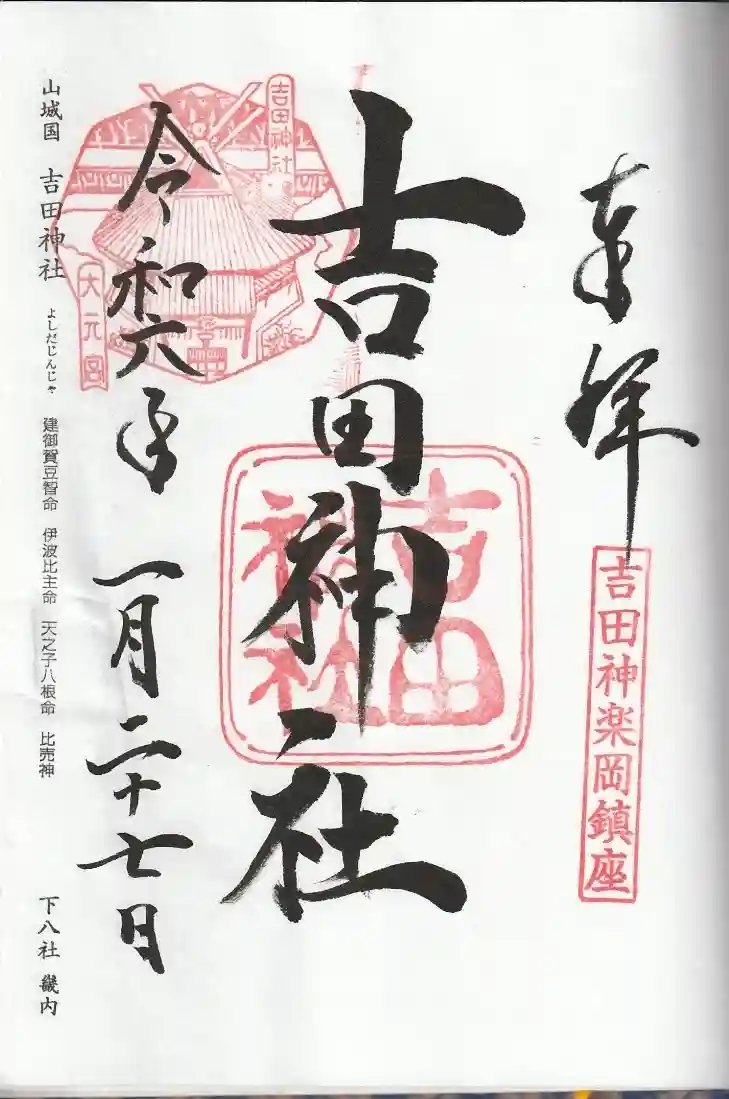 奉拝
吉田神楽岡鎮座
吉田神社
吉田
神社
吉田神社
大元宮
令和六年 一月二十七日
山城国 吉田神社 よしだじんじゃ 建御賀豆智命 伊波比主命 天之子八根命 比売神 下八社 畿内